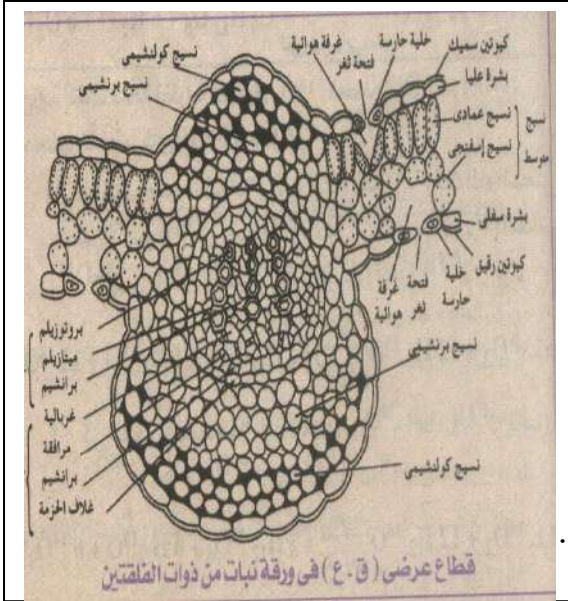 نسيج كولنشيمى
نسيج برنشيمى
غرفة هوائية
فتحة ثغر
خلية حارسة
كيوتين سميك
بشرة عليا
نسيج عمادى
نسيج إسفنجى
نسيج متوسط
بشرة سفلى
كيوتين رقيق
خلية حارسة
فتحة ثغر
غرفة هوائية
بروتوزيلم
ميتازيلم
برانشيم
غربالية
مرافقة
برانشيم
غلاف الحزمة
نسيج برنشيمى
نسيج كولنشيمى
قطاع عرضى (ق.ع) فى ورقة نبات من ذوات الفلقتين